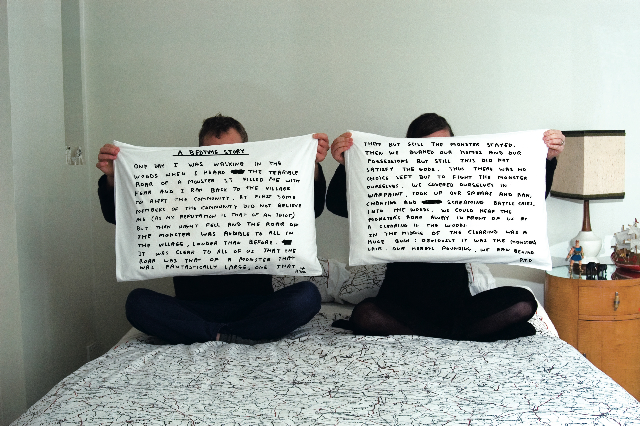 A BEDTIME STORY
ONE DAY I WAS WALKING IN THE
WOODS WHEN I HEARD THE TERRIBLE
ROAR OF A MONSTER. IT FILLED ME WITH
FEAR AND I RAN BACK TO THE VILLAGE
TO ALERT THE COMMUNITY. AT FIRST SOME
MEMBERS OF THE COMMUNITY DID NOT BELIEVE
ME (AS MY REPUTATION IS THAT OF AN IDIOT)
BUT THEN NIGHT FELL AND THE ROAR OF
THE MONSTER WAS AUDIBLE TO ALL IN
THE VILLAGE, LOUDER THAN BEFORE.
IT WAS CLEAR TO ALL OF US THAT THE
ROAR WAS THAT OF A MONSTER THAT
WAS FANTASTICALLY LARGE, ONE THAT
THEM BUT STILL THE MONSTER STAYED.
THEN WE BURNED OUR HOMES AND OUR
POSSESSIONS BUT STILL THIS DID NOT
SATISFY THE GODS. THUS THERE WAS NO
CHOICE LEFT BUT TO FIGHT THE MONSTER
OURSELVES. WE COVERED OURSELVES IN
WARPAINT, TOOK UP OUR SPEARS AND RAN,
CHANTING AND SCREAMING BATTLE CRIES,
INTO THE WOODS. WE COULD HEAR THE
MONSTER'S ROAR AWAY IN FRONT OF US BY
A CLEARING IN THE WOODS.
IN THE MIDDLE OF THE CLEARING WAS A
HUGE OBVIOUSLY IT WAS THE MONSTERS
LAIR. OUR HEARTS POUNDING, WE RAN BEHIND
P.T.O